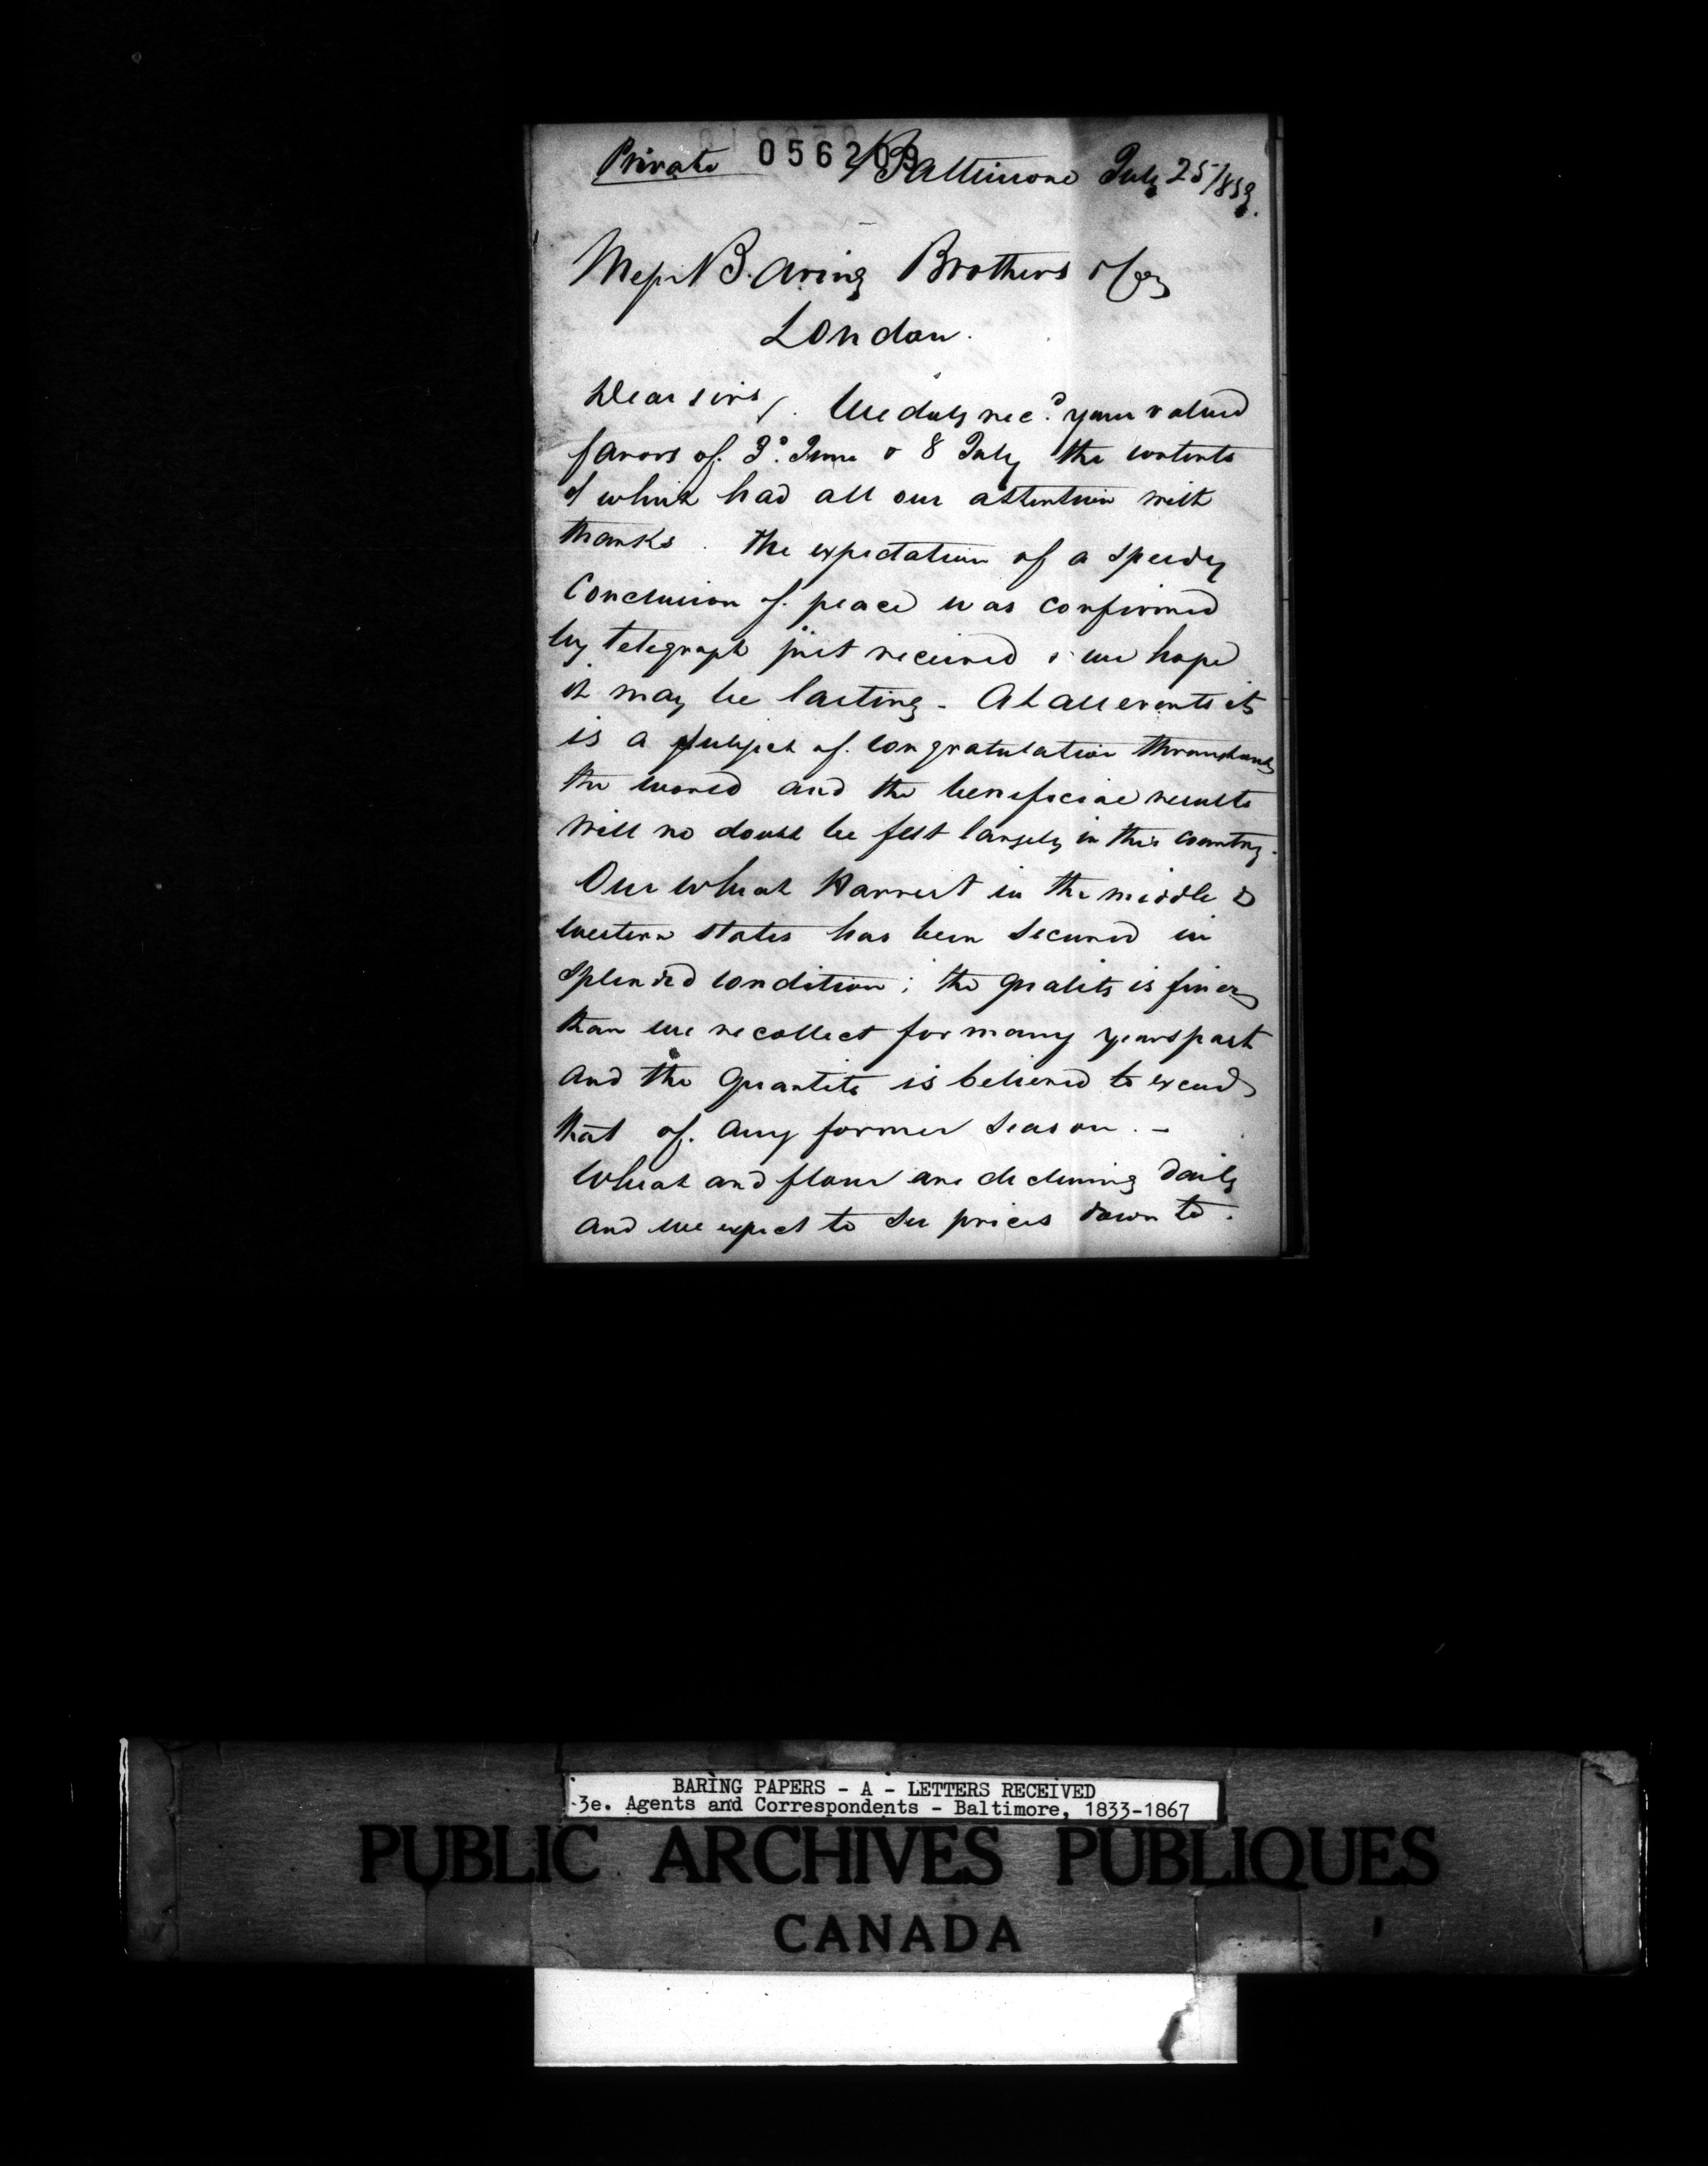 Private 056209 Baltimore July 25/1859.
Messrs Baring Brothers & Co
London.
Dear sirs/. We duly recd. your valued
favors of. 3d. June & 8 July the contents
of which had all our attention with
thanks. The expectation of a speedy
Conclusion of. peace was confirmed
by telegraph just received & we hope
it may be lasting - At all events it
is a subject of. congratulation throughout
the world and the beneficial results
will no doubt be felt largely in this country.
Our wheat Harvest in the middle &
western states has been secured in
splendid condition; the quality is finer
than we recollect for many years past
and the quantity is believed to exceed
that of. any former season. -
Wheat and flour are declining daily
and we expect to see prices down to.
BARING PAPERS - A - LETTERS RECEIVED
3e. Agents and Correspondents - Baltimore, 1833-1867
PUBLIC ARCHIVES PUBLIQUES
CANADA